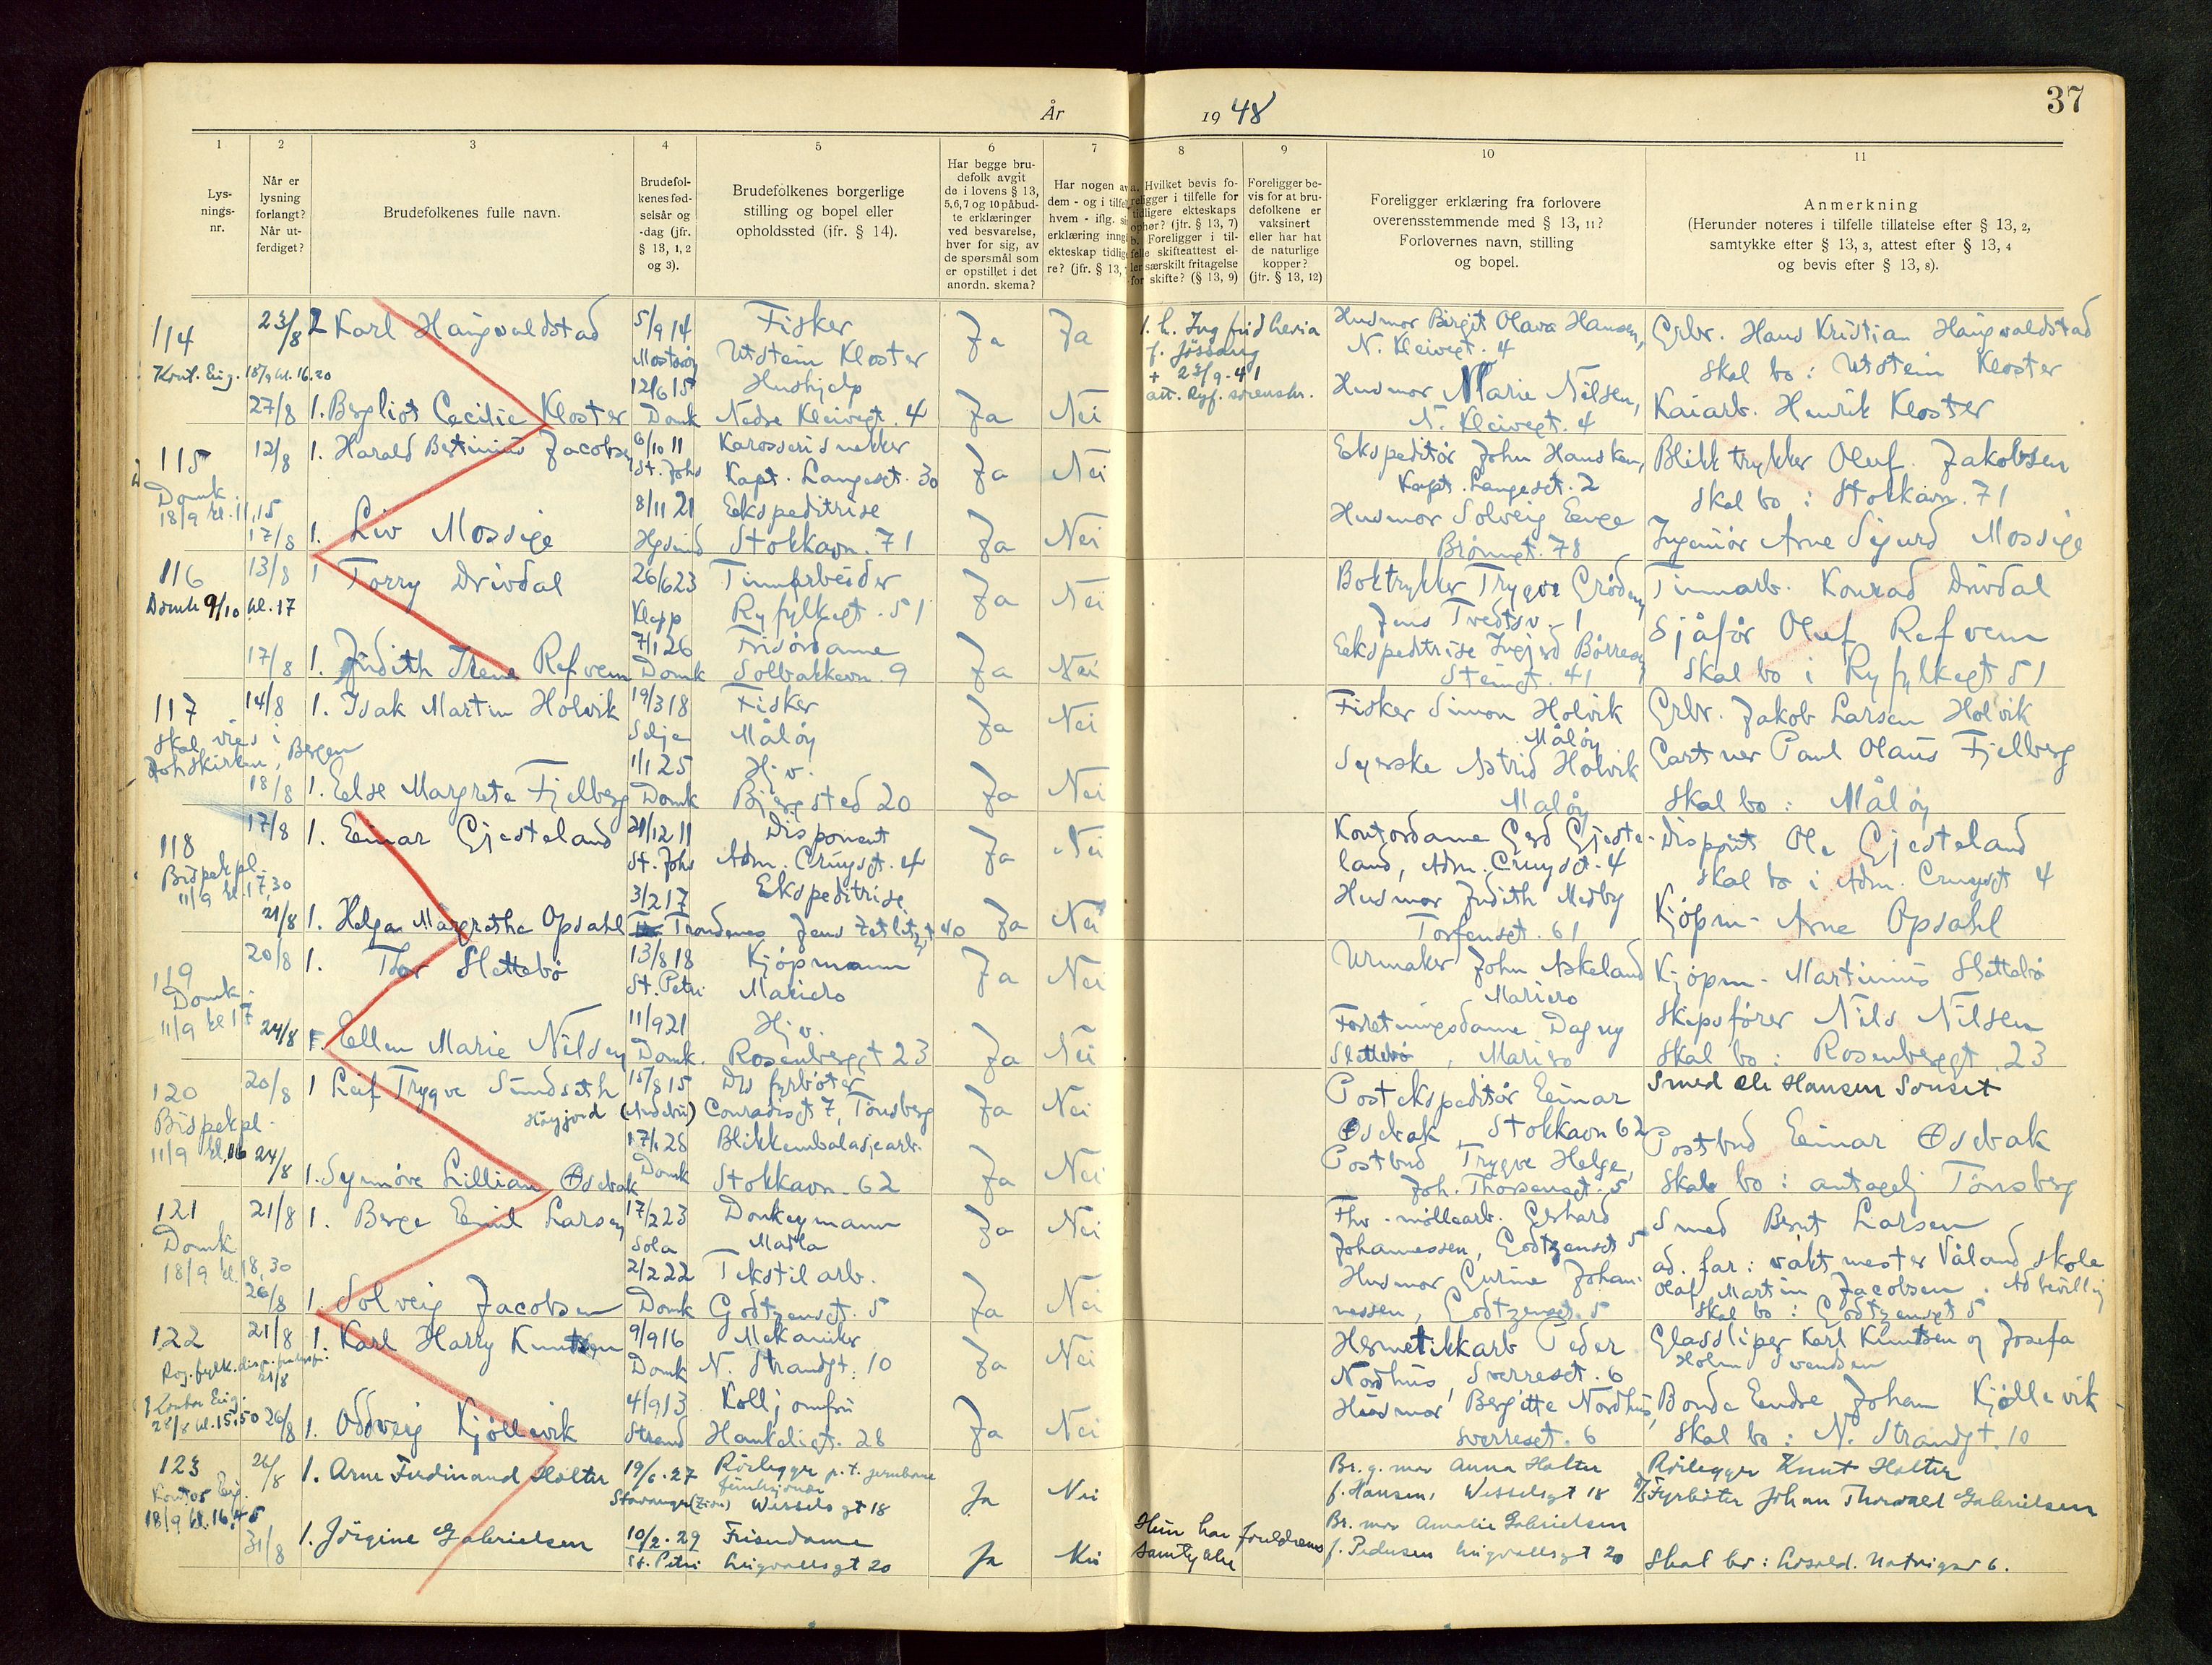 År 1948
37
1 2 3 4 5 6 7 8 9 10 11
Lys-
nings-
nr.
Når er
lysning
forlangt?
Når ut-
ferdiget?
Brudefolkenes fulle navn.
Brudefol-
kenes fød-
selsår og
-dag (jfr.
§ 13, 1, 2
og 3).
Brudefolkenes borgerlige
stilling og bopel eller
opholdssted (jfr. § 14).
Har begge bru-
defolk avgit
de i lovens § 13,
5, 6, 7 og 10 påbud-
te erklæringer
ved besvarelse,
hver for sig, av
de spørsmål som
er opstillet i det
anordn. skema?
Har nogen av
dem - og i tilfel
hvem - iflg.
erklæring inng
ekteskap tidlig
re? (jfr. § 13,
Hvilket bevis fo-
religger i tilfelle for
tidligere ekteskaps
ophør? (jfr. § 13, 7)
b. Foreligger i til-
felle skifteattest el-
ler særskilt fritagelse
for skifte? (§ 13, 9)
Foreligger be-
vis for at bru-
defolkene er
vaksinert
eller har hat
de naturlige
kopper?
(jfr. § 13, 12)
Foreligger erklæring fra forlovere
overensstemmende med § 13, 11?
Forlovernes navn, stilling
og bopel.
Anmerkning
(Herunder noteres i tilfelle tillatelse efter § 13, 2,
samtykke efter § 13, 3, attest efter § 13, 4
og bevis efter § 13, 8).
114 23/8 2 Karl Haugvaldstad 5/9 14 Fisker Ja Ja
Mosterøy Utstein Kloster
1. h. Ingfrid
f. Jössang
+ 23/9-41
att. Ryf. sorenskr.
Husmor Birgit Olava Hansen,
N. Kleivegt. 4
Grbr. Hans Kristian Haugvaldstad
Skal bo: Utstein Kloster
18/9 kl. 16.20
27/8 1. Bergliot Cecilie Kloster 12/6 15 Domk Hushjelp
Nedre Kleivegt. 4 Ja Nei
Husmor Marie Nilsen,
N. Kleivegt. 4
Kaiarb. Henrik Kloster
115 12/8 1. Harald Bertinius Jacobsen 6/10 11 Karosserisnekker
St. Johs Kapt. Langesgt. 30 Ja Nei
Ekspeditör John Hausken,
Kapt. Langesgt. 2
Blikktrykker Oluf Jakobsen
skal bo: Stokkavn. 71
Domk
18/9 kl. 11,15
17/8 1. Liv Mossige 8/11 21 Ekspeditrise
Stokkavn. 71 Ja Nei
Husmor Solveig Eenge
78
Ingeniör Arne Sigurd Mossige
116 13/8 1 Torry Drivdal 26/6 23 Tinnarbeider
Klepp Ryfylkegt. 51 Ja Nei
Domk 9/10 kl. 17
Boktrykker Trygve Gröden,
Jens Tvedtsv. 1
Tinnarb. Konrad Drivdal
17/8 1. Judith Irene Refvem 7/1 26 Frisördame
Domk Solbakkevn. 9 Ja Nei
Ekspeditrise Ingjerd Börresen,
Steingt. 41
Sjåfør Oluf Refvem
skal bo i Ryfylkegt 51
117 14/8 1. Isak Martin Holvik 19/3 18 Fisker
Selje Måløy Ja Nei
Skal vies i
Johskirken, Bergen
Fisker Simon Holvik
Måløy
Grbr. Jakob Larsen Holvik
18/8 1. Else Margrete Fjelberg 1/1 25 Hj. v.
Domk Bjergsted 20 Ja Nei
Syerske Astrid Holvik
Måløy
Gartner Paul Olaus Fjelberg
skal bo: Måløy
118 17/8 1. Einar Gjesteland 21/12 11 Disponent
St. Johs Adm. Cruysgt. 4 Ja Nei
Bispekpl.
11/9 kl. 17,30
Kontordame Gerd Gjeste-
land, Adm. Cruysgt. 4
Dispont Ole Gjesteland
skal bo i Adm. Cruysgt 4
21/8 1. Helga Margrethe Opsahl 3/2 17 Ekspeditrise
Trondenes Jens Zetlitzgt 40 Ja Nei
Husmor Judith Medby
Torfeusgt. 61
Kjöpm. Arne Opsahl
119 20/8 1. Thor Slettebö 13/8 18 Kjöpmann
St. Petri Mariero Ja Nei
Domk.
11/9 kl 17
Urmaker John Askeland
Mariero
Kjöpm. Martinius Slettebö
24/8 1. Ellen Marie Nilsen 11/9 21 Hj. v.
Domk. Rosenberggt 23 Ja Nei
Forretningsdame Dagny
Slettebö, Mariero
Skipsförer Nils Nilsen
skal bo: Rosenberggt. 23
120 20/8 1 Leif Trygve Sundseth 15/8 15 fyrböter
Höyjord (Andebu) Conradisgt 7, Tönsberg Ja Nei
Bispekpl.
11/9 kl. 16
Postekspeditör Einar
Osebak, Stokkavn 62
Smed Ole Hansen Sonset
24/8 1. Synnöve Lillian Osebak 17/1 28 Blikkembalasjearb.
Domk Stokkavn. 62 Ja Nei
Postbud Trygve Helge,
Joh. Thorsensgt. 5
Postbud Einar Osebak
Skal bo: antagelj Tönsberg
121 21/8 1. Berge Emil Larsen 17/2 23 Donkeymann
Sola Madla Ja Nei
Domk
18/9 kl. 18,30
Fhv. möllearb. Gerhard
Johannessen, Godtzensgt 5
Smed Bernt Larsen
26/8 1. Solveig Jacobsen 2/2 22 Tekstilarb.
Domk Godtzensgt. 5 Ja Nei
Husmor Gurine Johan-
nessen, Godtzensgt. 5
ad. far: vaktmester Våland skole
Olaf Martin Jacobsen. Ad bevillig
Skal bo: Godtzensgt 5
122 21/8 1. Karl Harry Knutsen 9/9 16 Mekaniker
Domk N. Strandgt. 10 Ja Nei
21/8
28/8 kl. 15.50
Hermetikkarb Peder
Nordhus, Sverresgt. 6
Glassliper Karl Knutsen og Josefa
Holm Svendsen
26/8 1. Oddveig Kjöllevik 4/9 13 Kolljomfru
Strand Haukeligt. 28 Ja Nei
Husmor Bergitte Nordhus,
Sverresgt. 6
Bonde Endre Johan Kjöllevik
Skal bo: N. Strandgt. 10
123 26/8 1. Arne Ferdinand Holter 19/6-27 Rörlegger p.t. jernbane
funksjonær
Stavanger (Zion) Wesselsgt 18 Ja Nei
Kontor Eig.
18/9 kl. 16,45
Br. g. mor Anna Holter
f. Hansen, Wesselsgt 18
Rörlegger Knut Holter
Fyrböter Johan Thorvald Gabrielsen
31/8 1. Jörgine Gabrielsen 10/2-29 Frisördame
St. Petri 20 Ja Nei
Hun har foreldrenes
samtykke
Br. mor Amalie Gabrielsen
f. Pedersen 20
Skal bo: 6.